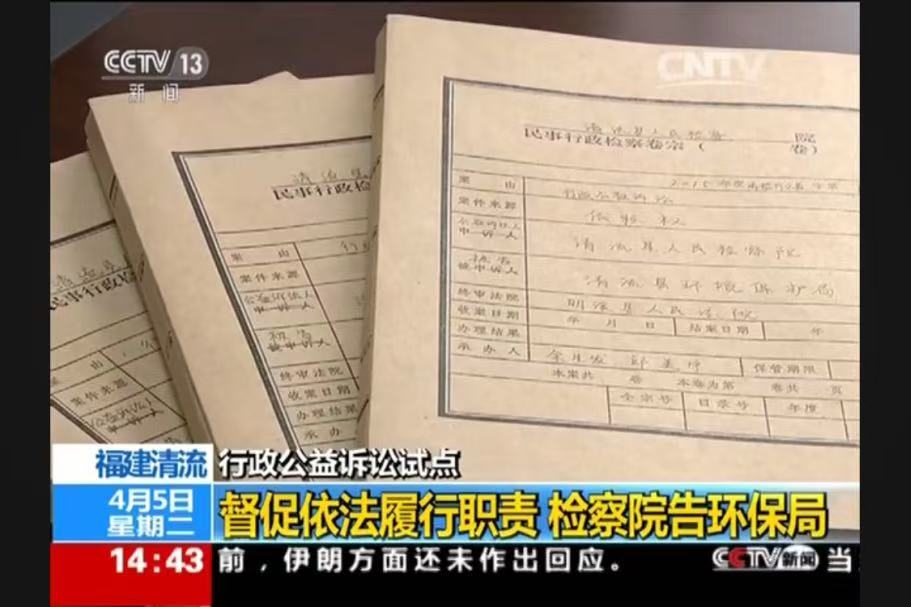 CCTV 13
新闻
CNTV
清流县人民检察院
民事行政检察卷宗（卷）
案由
行政公益诉讼
案件来源
依职权
公益诉讼人
申诉人
清流县人民检察院
被告
被申诉人
清流县环境保护局
终审法院
明溪县人民法院
收案日期
年 月 日
结案日期
年
办理结果
承办人
保管期限
本案共 卷 本卷为第 卷共 页
全宗号
目录号
年度
民事行政检
案由
案件来源
公益诉讼人
申诉人
被告
被申诉人
终审法院
收案日期
办理结果
承办
民事行政检
案由
案件来源
福建清流
行政公益诉讼试点
4月5日
星期二
督促依法履行职责 检察院告环保局
14:43
前，伊朗方面还未作出回应。
CCTV新闻
当